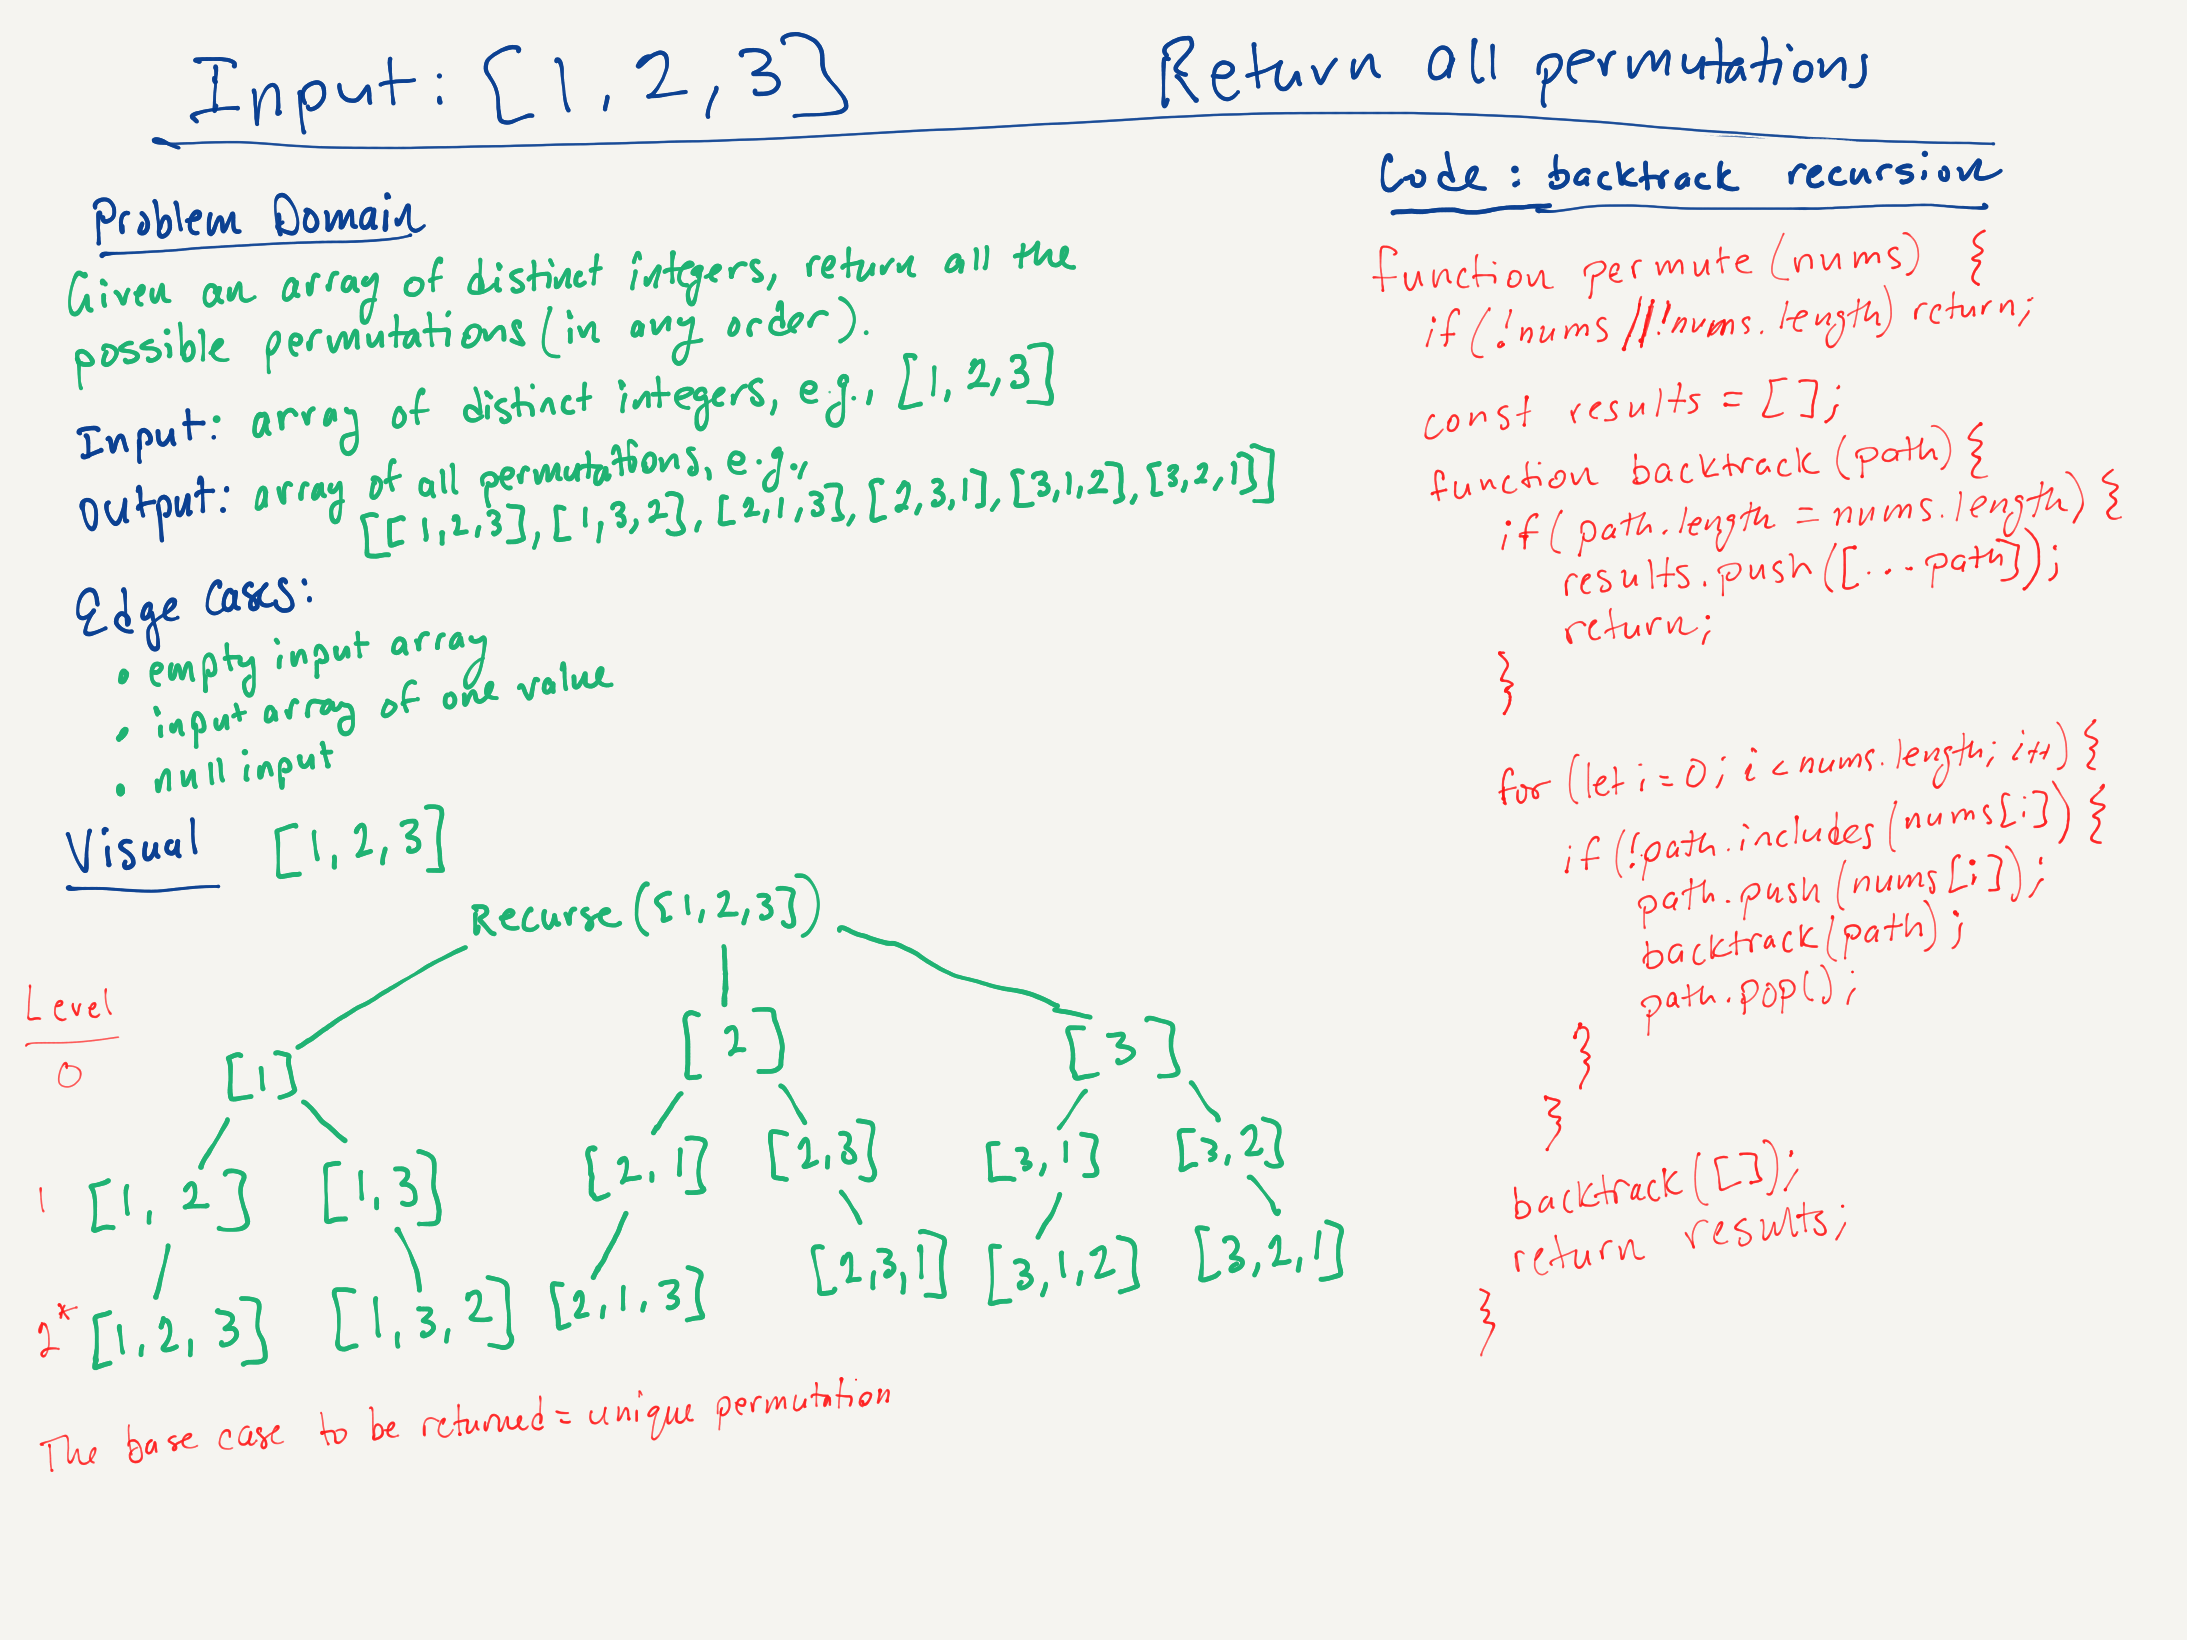 Input: [1, 2, 3]
Return all permutations
Problem Domain
Given an array of distinct integers, return all the
possible permutations (in any order).
Input: array of distinct integers, e.g., [1, 2, 3]
Output: array of all permutations, e.g.,
[[1,2,3], [1,3,2], [2,1,3], [2,3,1], [3,1,2], [3,2,1]]
Edge Cases:
• empty input array
• input array of one value
• null input
Visual [1, 2, 3]
Recurse([1, 2, 3])
Level
0
[1] [2] [3]
1 [1, 2] [1, 3] [2, 1] [2, 3] [3, 1] [3, 2]
2* [1, 2, 3] [1, 3, 2] [2, 1, 3] [2, 3, 1] [3, 1, 2] [3, 2, 1]
The base case to be returned = unique permutation
Code: backtrack recursion
function permute (nums) {
if (!nums || !nums.length) return;
const results = [];
function backtrack (path) {
if (path.length = nums.length) {
results.push([...path]);
return;
}
for (let i = 0; i < nums.length; i++) {
if (!path.includes(nums[i]) {
path.push (nums[i]);
backtrack (path);
path.pop();
}
}
backtrack ([]);
return results;
}